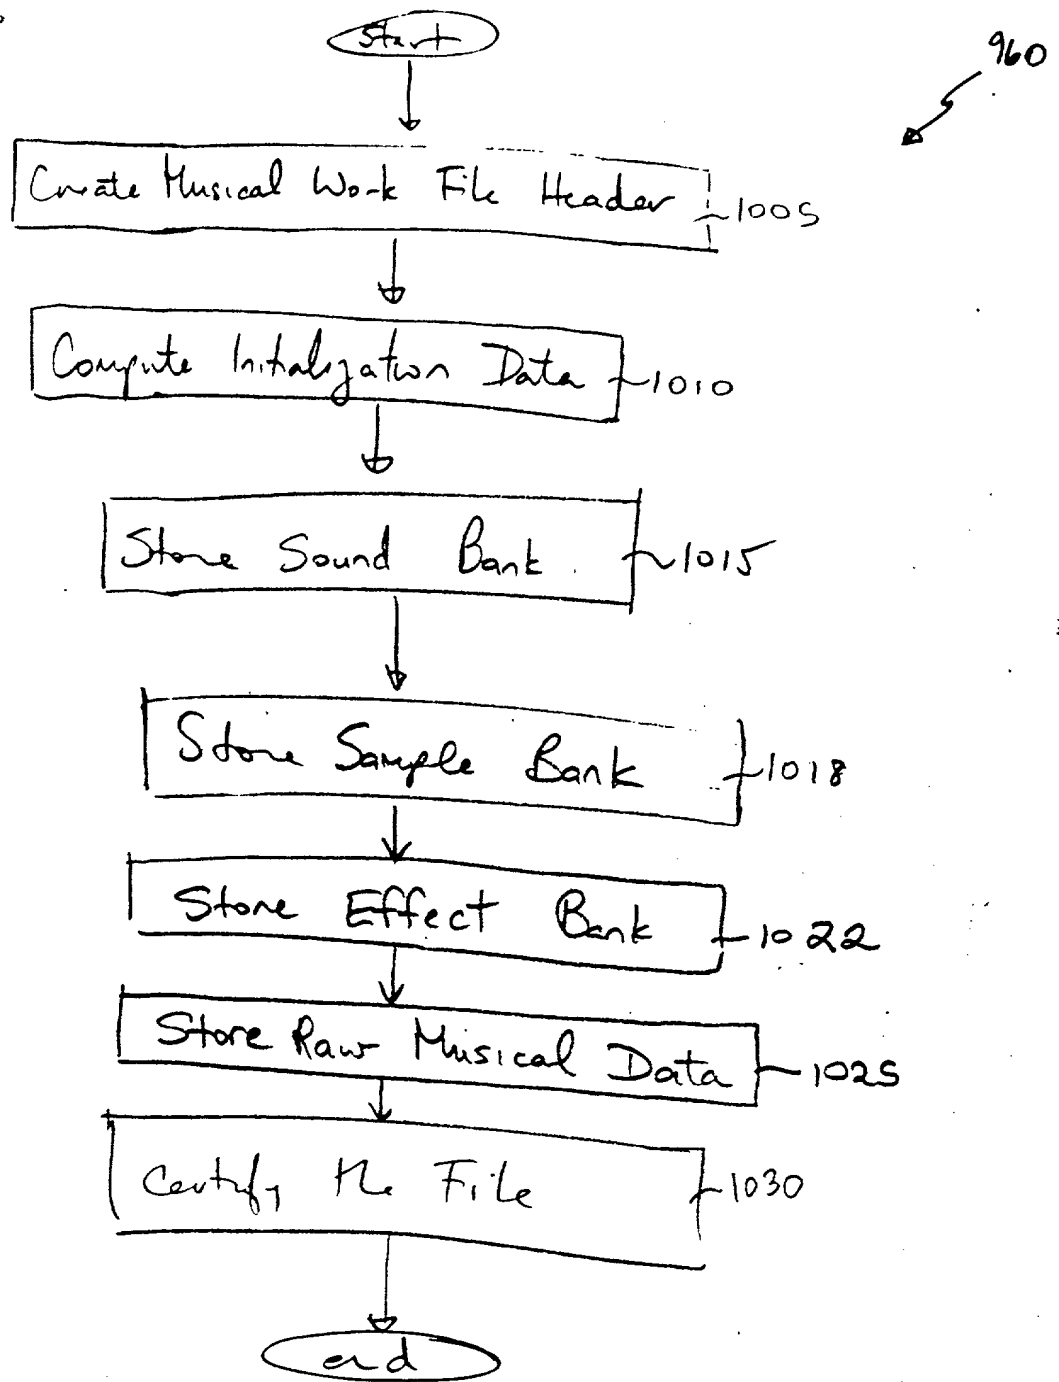 start
960
Create Musical Work File Header 1005
Compute Initialization Data 1010
Store Sound Bank 1015
Store Sample Bank 1018
Store Effect Bank 1022
Store Raw Musical Data 1025
Certify the File 1030
end